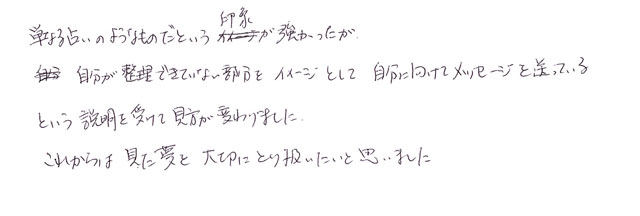 単なる占いのようなものだという印象が強かったが、
自分が整理できていない部分をイメージとして自分に向けてメッセージを送っている
という説明を受けて見方が変わりました。
これからは見た夢を大切にとり扱いたいと思いました